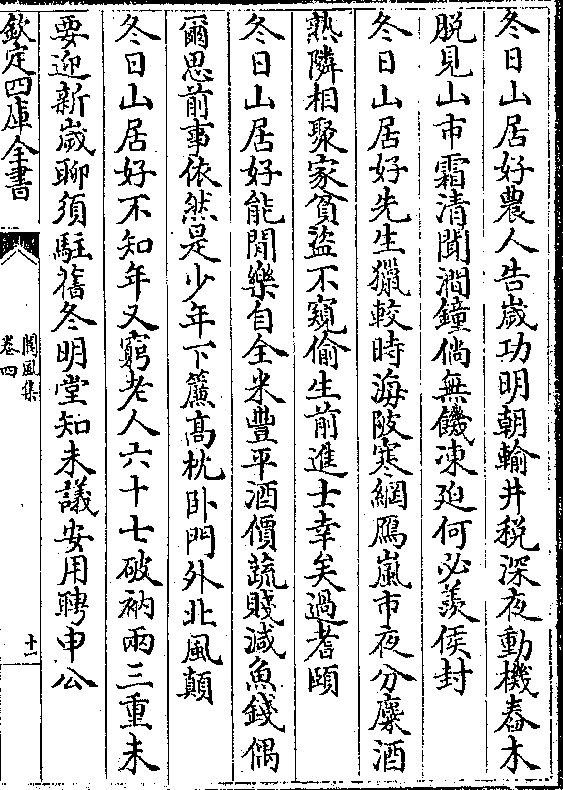 冬日山居好農人告歲功明朝輸井稅深夜動機舂木
脱見山市霜清聞澗鐘倘無饑凍廹何必羡侯封
冬日山居好先生獵較時海陂寒網鴈嵐市夜分麋酒
熟隣相聚家貧盜不窺偷生前進士幸矣過耆頤
冬日山居好能閒樂自全米豐平酒價蔬賤減魚錢偶
爾思前事依然是少年下簾高枕卧門外北風顛
冬日山居好不知年又窮老人六十七破衲兩三重未
要迎新歲聊須駐舊冬明堂知未議安用聘申公
欽定四庫全書
閬風集
卷四
十一